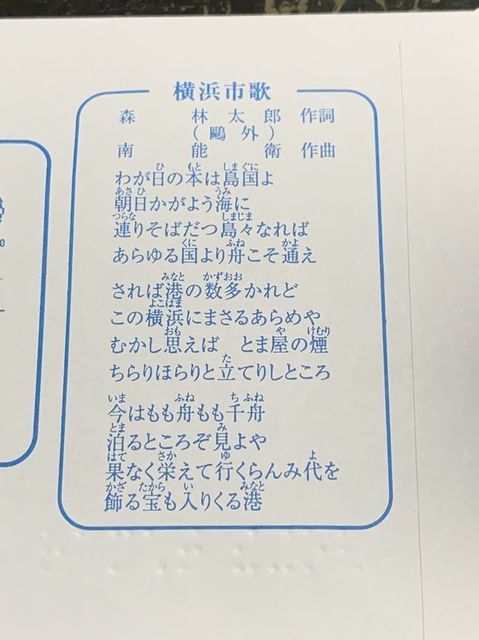 横浜市歌
森 林太郎 作詞
（鷗外）
南 能衛 作曲
わが日の本は島国よ
朝日かがよう海に
連りそばだつ島々なれば
あらゆる国より舟こそ通え
されば港の数多かれど
この横浜にまさるあらめや
むかし思えば とま屋の煙
ちらりほらりと立てりしところ
今はもも舟もも千舟
泊るところぞ見よや
果なく栄えて行くらんみ代を
飾る宝も入りくる港